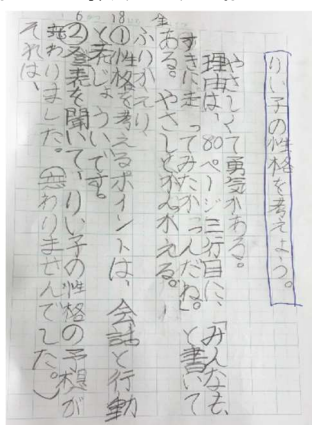 りい子の性格を考えよう。
やさしくて勇気がある。
理由は、80ページ三行目に、「みんなも、
すきに走ってみたかったんだね。」と書いて
ある。やさしとかんがえる。
全
ふりかえり
18
①性格を考えるポイントは、会話と行動
と表じょうです。
6
②発表を聞いて、りい子の性格の予想が
変わりました。(変わりませんでした。)
それは、